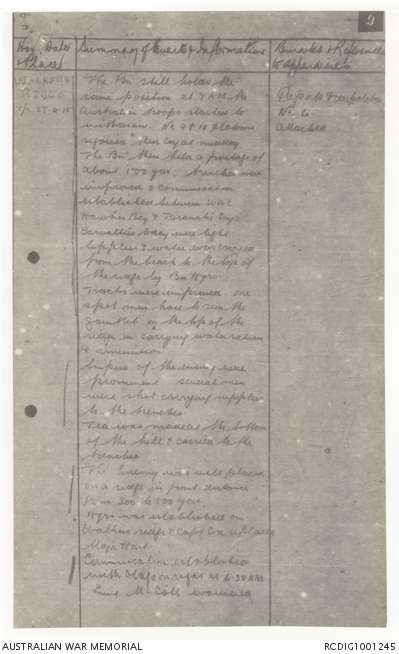 9
Hour Date & Place
Summary of Events & Information
Remarks & References to appendices
WALKERS RIDGE
27-4-15
The Bn still holds the
same position at 8 AM the
Australian troops started to
withdraw. No 9 & 10 platoons
rejoined their Coy at midday
The Bn then held a frontage of
about 500 yds. trenches were
improved & communication
established between West
Hawkes Bay & Taranaki Coys
Casualties today were light
supplies & water was carried
from the beach to the top of
the ridge by Bn Hqrs.
Tracks were improved one
spot men have to run the
gauntlet on the top of the
ridge in carrying water rations
& ammunition
Snipers of the enemy were
prominent several men
were shot carrying supplies
to the trenches
Tea was made at the bottom
of the hill & carried to the
trenches
The Enemy was well placed
on a ridge in front distance
from 300 to 500 yds.
Hqrs was established on
Walkers ridge & Capt Cox replaces
Major Hart
Communication established
with at 6-30 AM
Lieut McColl wounded
No 6
attached
AUSTRALIAN WAR MEMORIAL
RCDIG1001245